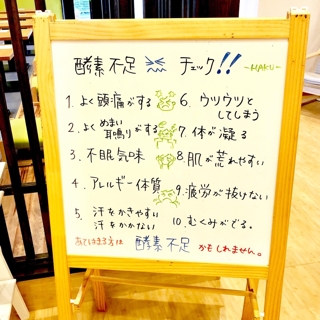 酵素不足 チェック!!
~HAKU~
1. よく頭痛がする
2. よくめまい
耳鳴りがする
3. 不眠気味
4. アレルギー体質
5. 汗をかきやすい
汗をかかない
6. ウツウツと
してしまう
7. 体が凝る
8. 肌が荒れやすい
9. 疲労が抜けない
10. むくみがでる。
あてはまる方は 酵素不足 かもしれません。